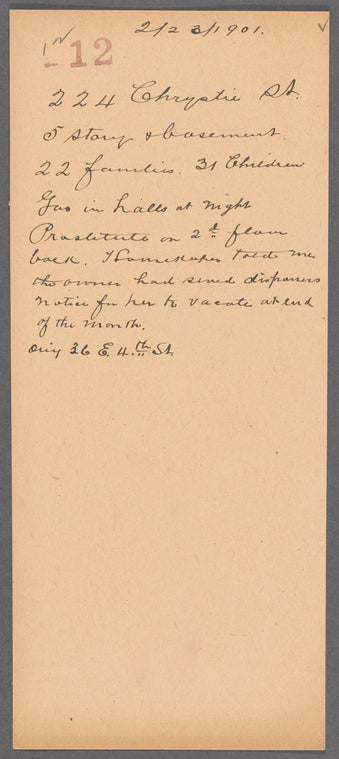 2/23/1901.
12
224 Chrystie St.
5 story & basement.
22 families. 31 Children
Gas in halls at night
Prostitute on 2d floor
back. Housekeeper told me
the owner had served dispossess
notice for her to vacate at end
of the month.
36 E. 4th St.